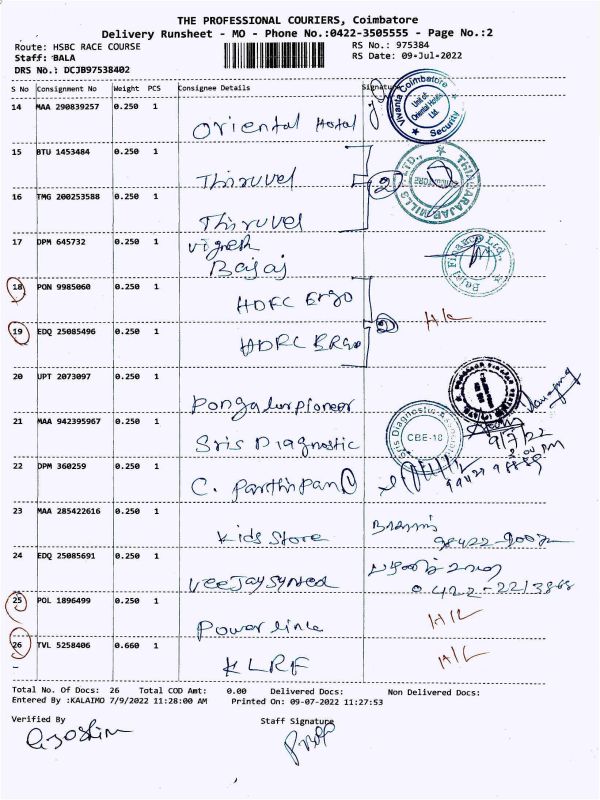 THE PROFESSIONAL COURIERS, Coimbatore
Delivery Runsheet - MO - Phone No.:0422-3505555 - Page No.:2
Route: HSBC RACE COURSE
RS No.: 975384
Staff: BALA
RS Date: 09-Jul-2022
DRS No.: DCJB97538402
S No Consignment No Weight PCS Consignee Details Signature
14 MAA 290839257 0.250 1
Oriental Hotal
Vivanta Coimbatore
Unit of: Oriental Hotels Ltd.
Security
15 BTU 1453484 0.250 1
Thiruvel
2
THIAGARAJAR MILLS LTD.,
16 TMG 200253588 0.250 1
Thiruvel
17 DPM 645732 0.250 1
Vignesh
Bajaj
Bajaj Finance Ltd.
18 PON 9985060 0.250 1
HDFC Ergo
19 EDQ 25085496 0.250 1
HDFC ERGO
2
H/L
20 UPT 2073097 0.250 1
Pongalur pioneer
21 MAA 942395967 0.250 1
Sris Diagnostic
CBE-18
9/7/22
22 DPM 360259 0.250 1
C. Parthipan
23 MAA 285422616 0.250 1
Kids Store
24 EDQ 25085691 0.250 1
Veejay Syntex
25 POL 1896499 0.250 1
Power link
H/L
26 TVL 5258406 0.660 1
KLRF
H/L
Total No. Of Docs: 26 Total COD Amt: 0.00 Delivered Docs: Non Delivered Docs:
Entered By :KALAIMO 7/9/2022 11:28:00 AM Printed On: 09-07-2022 11:27:53
Verified By
Staff Signature